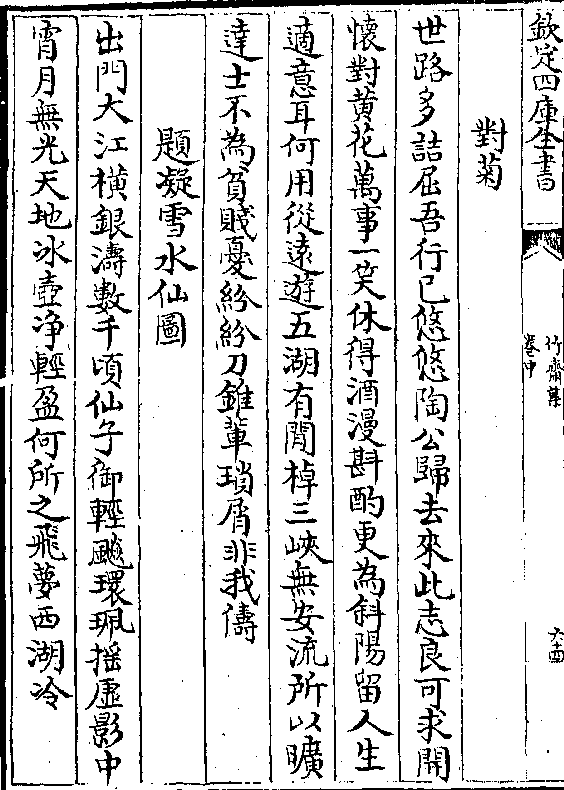 欽定四庫全書
竹齋集
卷中
六十四
對菊
世路多詰屈吾行已悠悠陶公歸去來此志良可求開
懷對黄花萬事一笑休得酒漫斟酌更為斜陽留人生
適意耳何用從遠遊五湖有閒棹三峽無安流所以曠
達士不為貧賤憂紛紛刀錐輩瑣屑非我儔
題凝雪水仙圖
出門大江横銀濤數千頃仙子御輕飈環珮摇虚影中
宵月無光天地冰壺净輕盈何所之飛夢西湖冷